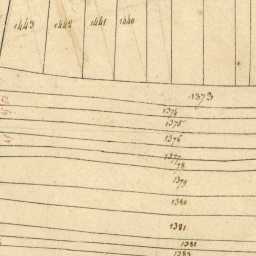 1443 1442 1441 1440
1373
1374
1375
1376
1377
1378
1379
1380
1381
1382
1383